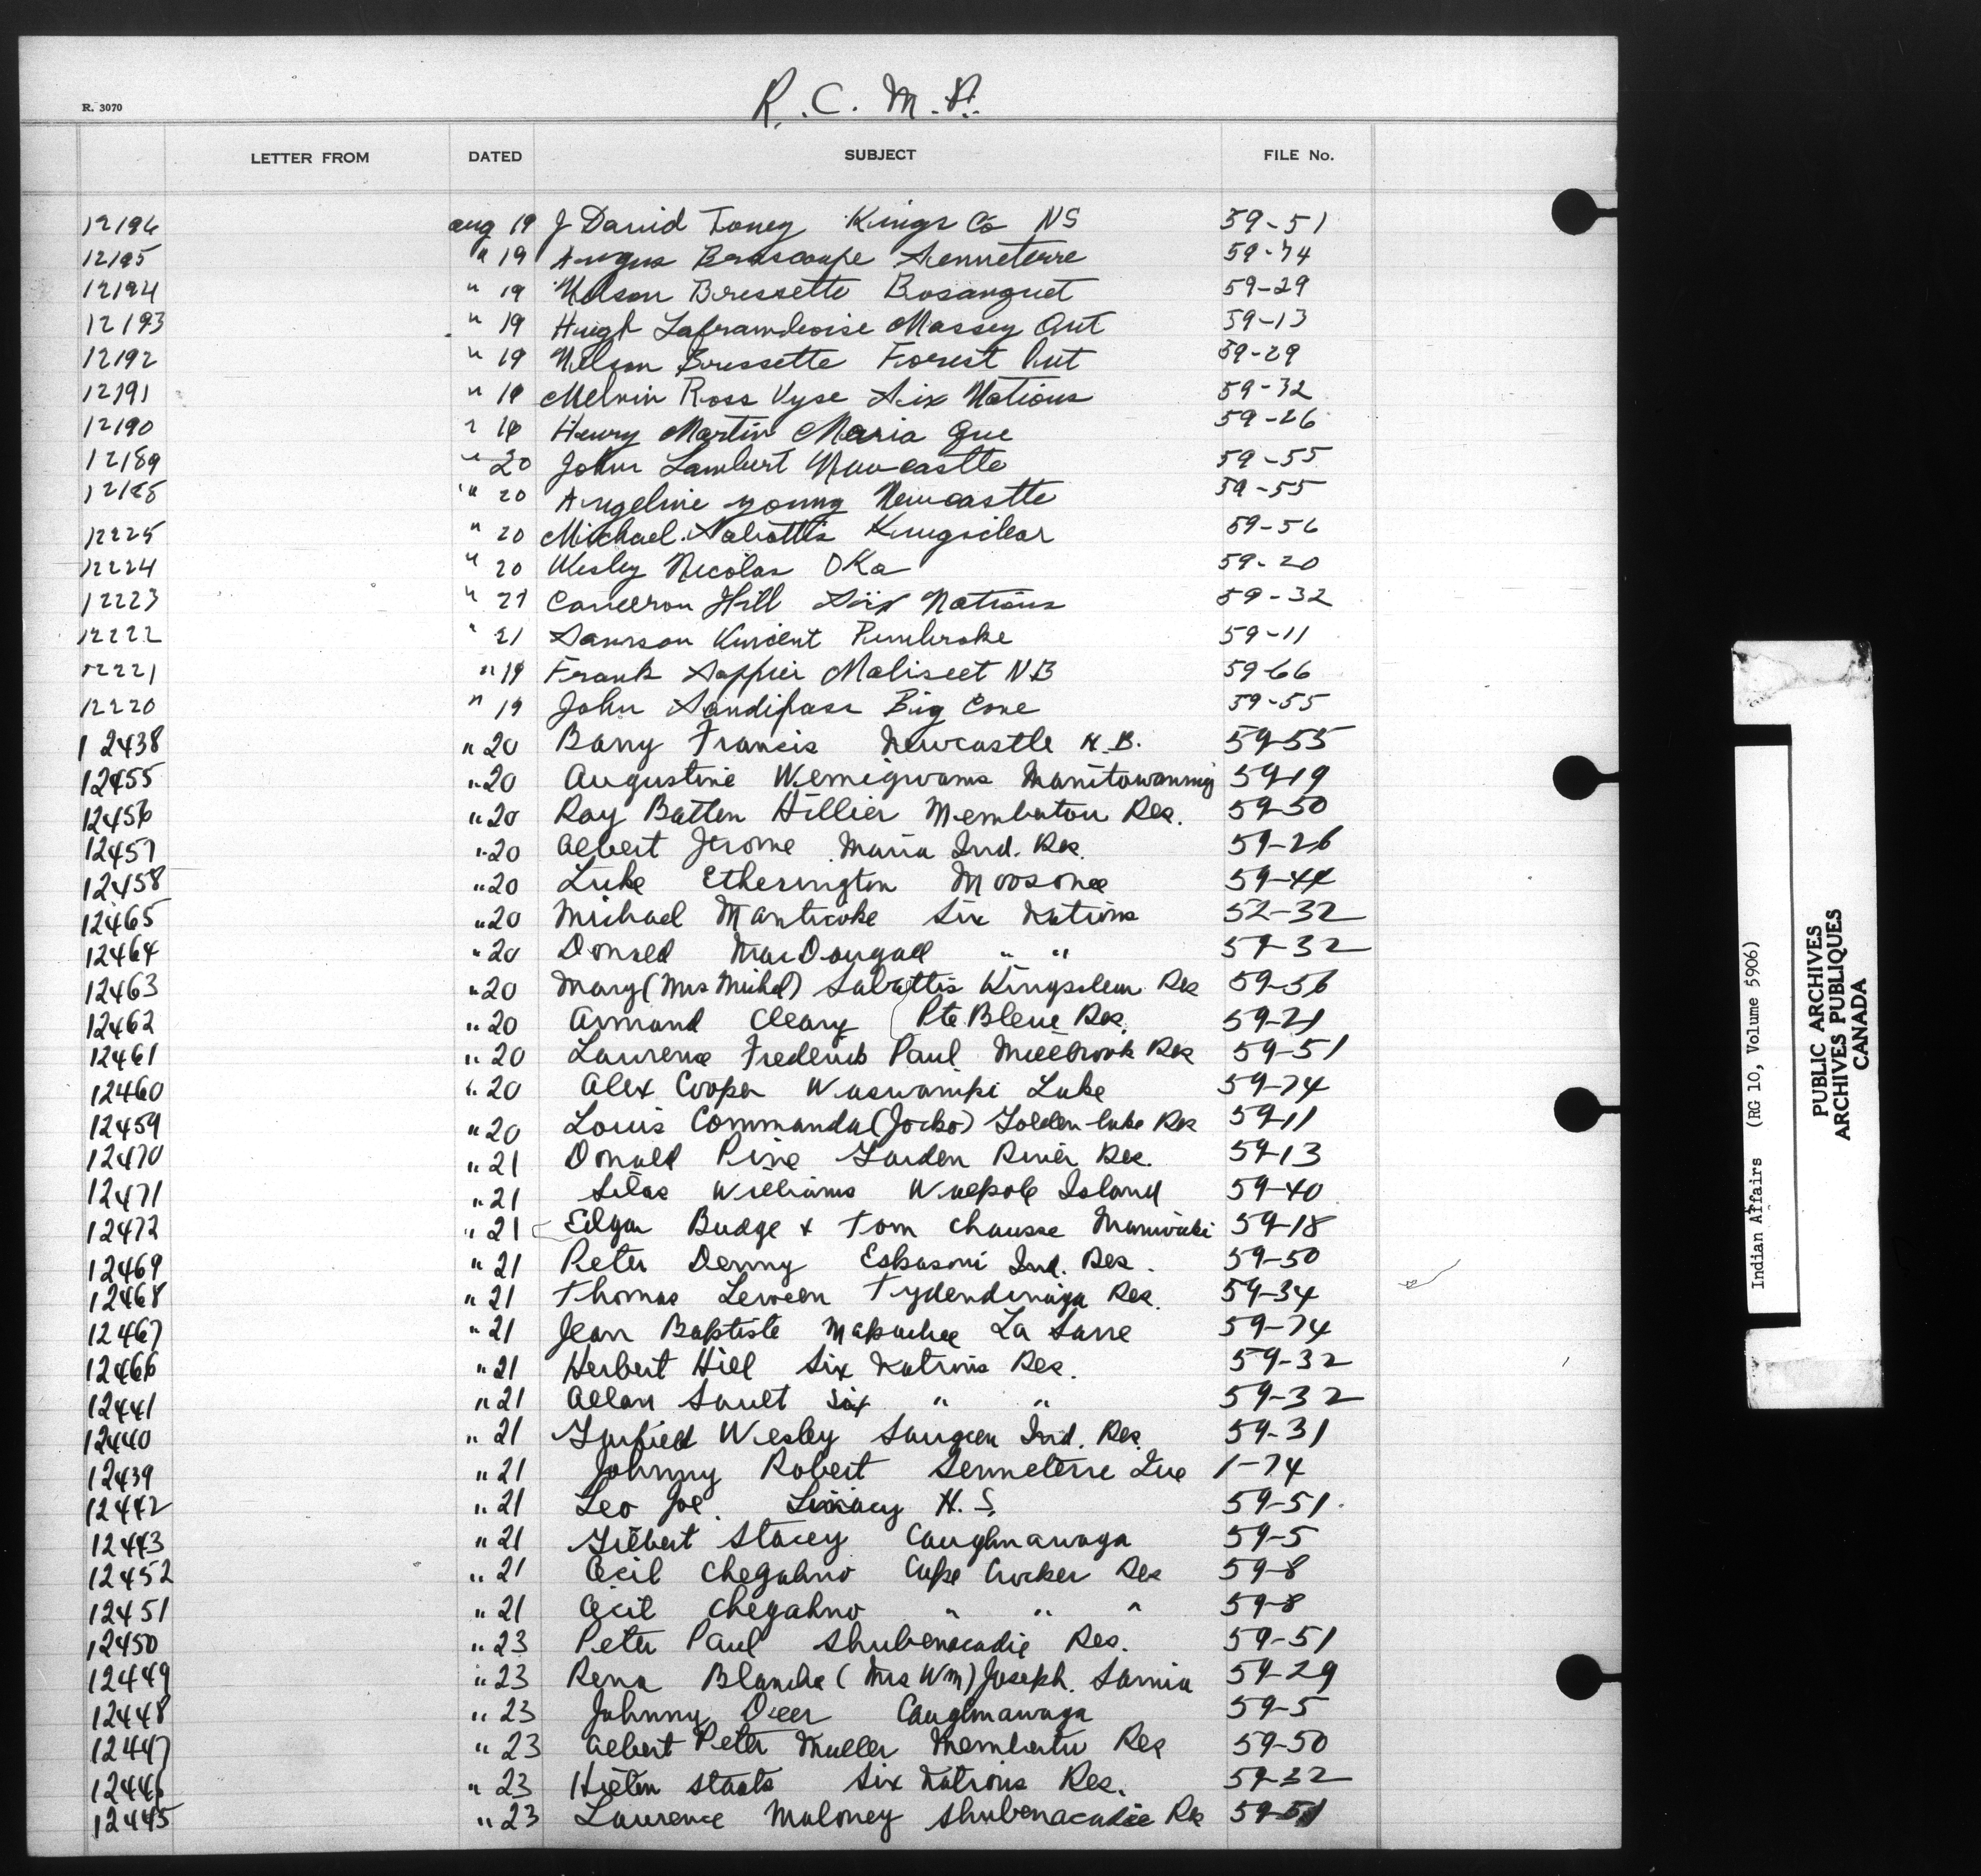 R. C. M. P.
R. 3070
LETTER FROM DATED SUBJECT FILE No.
12196 aug 19 J David Toney Kings Co NS 59-51
12195 " 19 Angus Brascoupe Senneterre 59-74
12194 " 19 Nelson Bressette Bosanquet 59-29
12193 " 19 Hugh Laframboise Massey Ont 59-13
12192 " 19 Nelson Bressette Forest Ont 59-29
12191 " 19 Melvin Ross Vyse Six Nations 59-32
12190 " 18 Henry Martin Maria Que 59-26
12189 " 20 John Lambert Newcastle 59-55
12188 " 20 Angeline young Newcastle 59-55
12225 " 20 Michael Sabattis Kingsclear 59-56
12224 " 20 Wesley Nicolas OKa 59-20
12223 " 21 Cameron Hill Six Nations 59-32
12222 " 21 Samson Vincent Pembroke 59-11
12221 " 19 Frank Sappier Maliseet NB 59-66
12220 " 19 John Sandipass Big Cove 59-55
12438 " 20 Barry Francis Newcastle N.B. 59-55
12455 " 20 Augustine Wemigwans Manitowaning 59-19
12456 " 20 Ray Batten Hillier Membatou Res. 59-50
12457 " 20 Albert Jerome Maria Ind. Res. 59-26
12458 " 20 Luke Etherington Moosonee 59-44
12465 " 20 Michael Manticoke Six Nations 52-32
12464 " 20 Donald MacDougall " " 59-32
12463 " 20 Mary (Mrs Michel) Sabattis Kingsclear Res 59-56
12462 " 20 Armand Cleary Pte Bleue Res. 59-21
12461 " 20 Laurence Frederick Paul Millbrook Res 59-51
12460 " 20 Alex Cooper Waswanipi Lake 59-74
12459 " 20 Louis Commanda (Jocko) Golden-lake Res 59-11
12470 " 21 Donald Pine Garden River Res. 59-13
12471 " 21 Silas Williams Walpole Island 59-40
12472 " 21 Edgar Budge + Tom Chausse Maniwaki 59-18
12469 " 21 Peter Denny Eskasoni Ind. Res. 59-50
12468 " 21 Thomas Leween Tydendinaga Res. 59-34
12467 " 21 Jean Baptiste Mapachee La Sarre 59-74
12466 " 21 Herbert Hill Six Nations Res. 59-32
12441 " 21 Allan Sault Six " " 59-32
12440 " 21 Garfield Wesley Saugeen Ind. Res. 59-31
12439 " 21 Johnny Robert Senneterre Que 1-74
12442 " 21 Leo Joe N.S. 59-51.
12443 " 21 Gilbert Stacey Caughnawaga 59-5
12452 " 21 Cecil Chegahno Cape Croker Res 59-8
12451 " 21 Cecil Chegahno " " " 59-8
12450 " 23 Peter Paul Shubenacadie Res. 59-51
12449 " 23 Rena Blanche (Mrs Wm) Joseph. Sarnia 59-29
12448 " 23 Johnny Deer Caughnawaga 59-5
12447 " 23 Albert Peter Muller Membertu Res 59-50
12446 " 23 Hilton Staats Six Nations Res. 59-32
12445 " 23 Laurence Maloney Shubenacadie Res 59-51
Indian Affairs (RG 10, Volume 5906)
PUBLIC ARCHIVES
ARCHIVES PUBLIQUES
CANADA